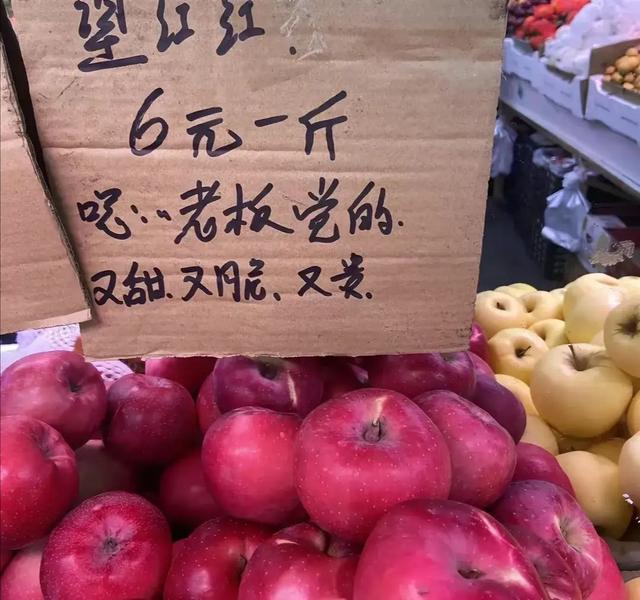 红红.
6元一斤
呃:..老板觉的.
又甜.又脆、又贵.